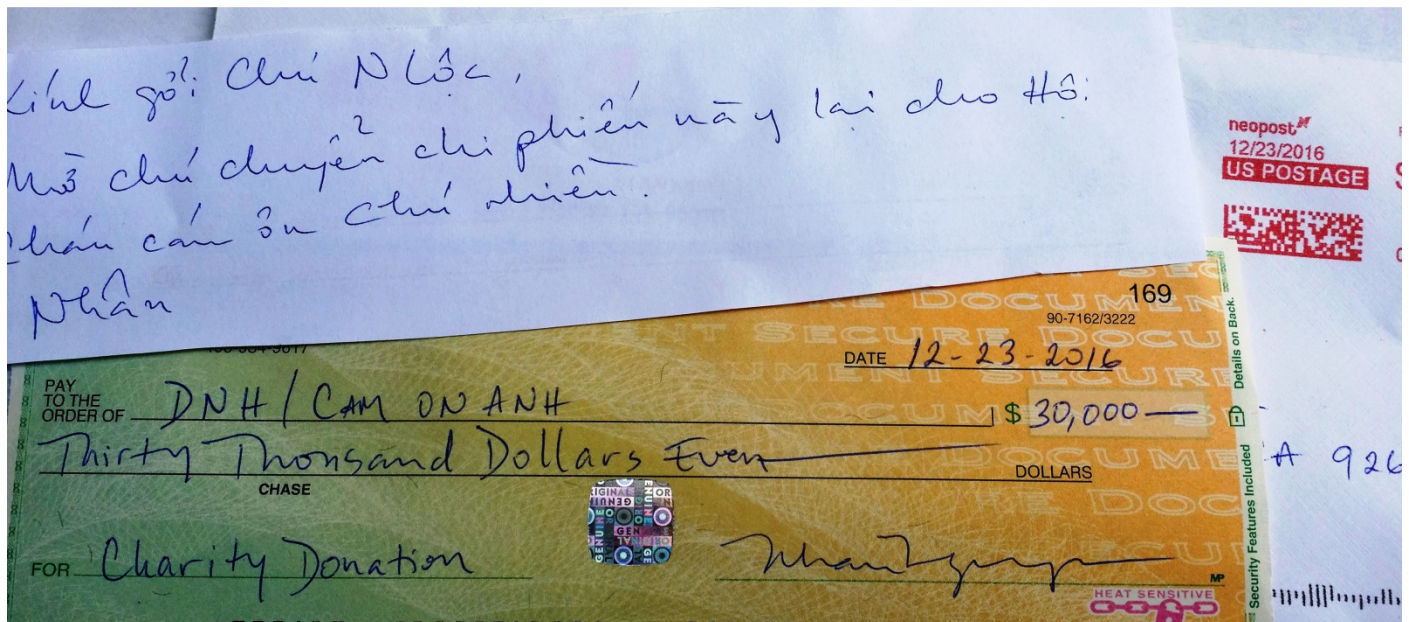 Kính gởi Chú N Lộc,
Nhờ chú chuyển chi phiếu nāy lại cho Hội
Cháu cám ơn Chú nhiều.
Nhân
neopost
12/23/2016
US POSTAGE
169
90-7162/3222
DATE 12-23-2016
PAY
TO THE
ORDER OF DNH / CAM ON ANH $ 30,000
Thirty Thousand Dollars Even DOLLARS
CHASE
FOR Charity Donation Nhan Nguyen
MP
HEAT SENSITIVE
Security Features Included Details on Back.
A 926
ORIGINAL
GENUINE
SECURE DOCUMENT